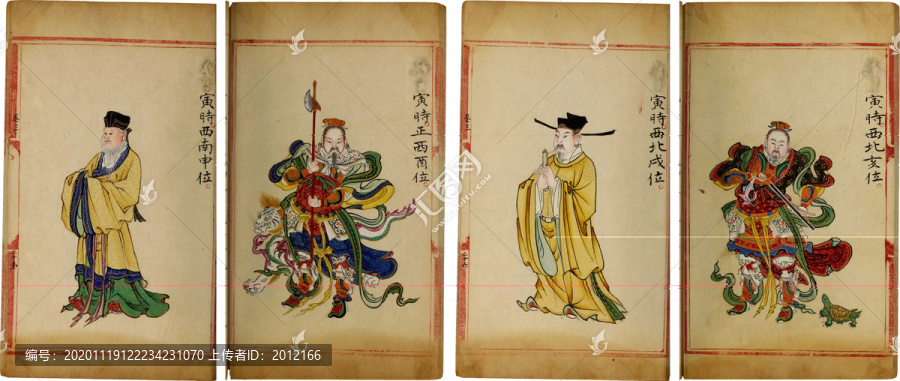 寅時西南申位
寅時正西酉位
寅時西北戌位
寅時西北亥位
编号：20201119122234231070 上传者ID：2012166